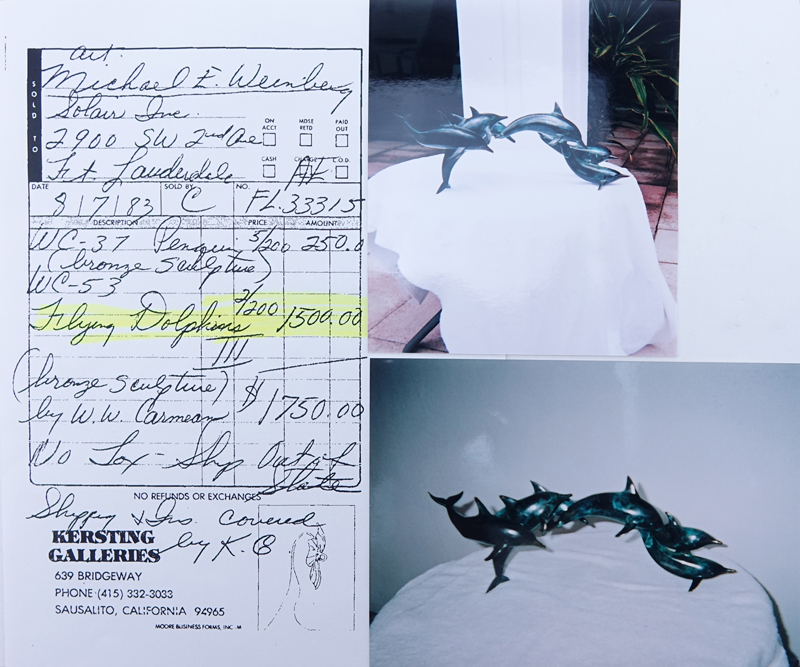 art.
SOLD TO
Michael E. Weinberg
Solair Inc.
2900 SW 2nd Ave
Ft. Lauderdale
ON ACCT
MDSE RETD
PAID OUT
CASH
CHARGE
C.O.D.
DATE
SOLD BY
NO.
8/7/83 C FL. 33315
DESCRIPTION PRICE AMOUNT
WC-37 Penguin 5/200 250.0
(bronze sculpture)
WC-53
Flying Dolphins 3/200 1500.00
III
(bronze sculpture) $
by W.W. Carmean 1750.00
No Tax - Ship Out of
State
NO REFUNDS OR EXCHANGES
Shipping & Ins. covered
by K.G
KERSTING
GALLERIES
639 BRIDGEWAY
PHONE (415) 332-3033
SAUSALITO, CALIFORNIA 94965
MOORE BUSINESS FORMS, INC -M